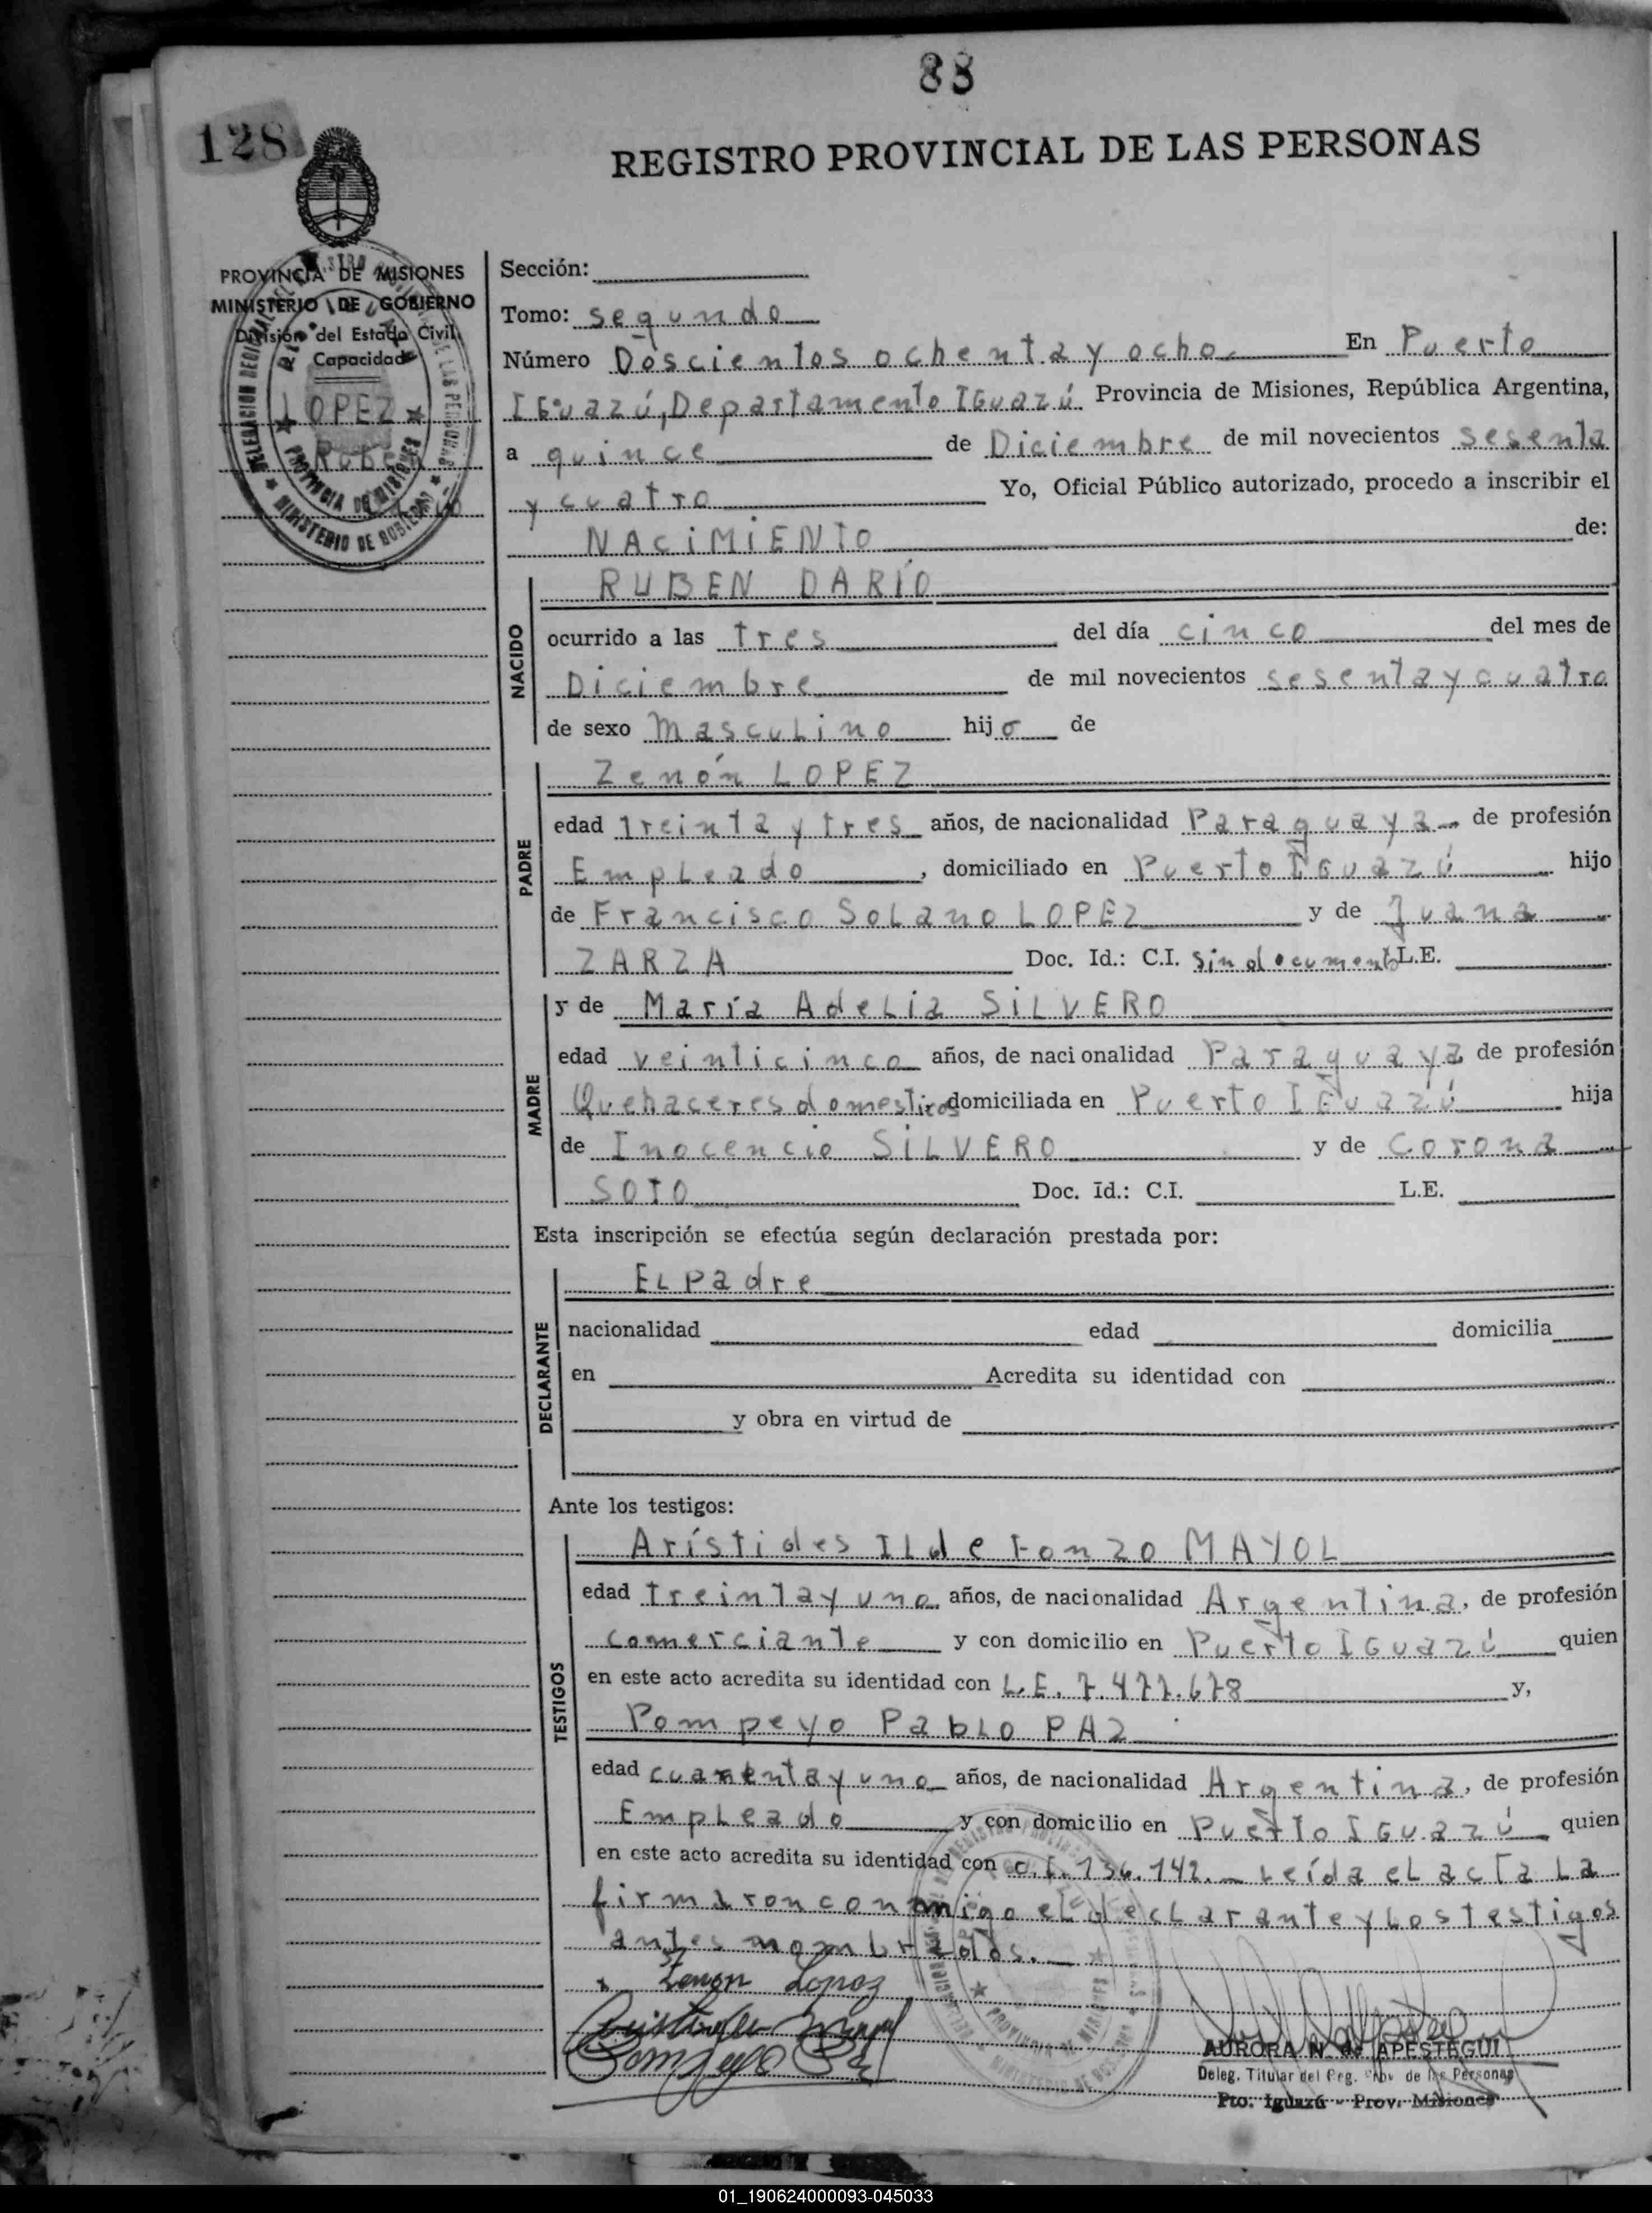 88
128
REGISTRO PROVINCIAL DE LAS PERSONAS
PROVINCIA DE MISIONES
MINISTERIO DE GOBIERNO
División del Estado Civil
Capacidad
LOPEZ
Rubén
Sección:
Tomo: segundo
Número Doscientos ochenta y ocho. En Puerto
IGuazú, Departamento IGuazú. Provincia de Misiones, República Argentina,
a quince de Diciembre de mil novecientos sesenta
y cuatro Yo, Oficial Público autorizado, procedo a inscribir el
NACiMiENTO de:
NACIDO
RUBEN DARÍO
ocurrido a las tres del día cinco del mes de
Diciembre de mil novecientos sesenta y cuatro
de sexo Masculino hijo de
PADRE
Zenón LOPEZ
edad treinta y tres años, de nacionalidad Paraguaya de profesión
Empleado, domiciliado en Puerto IGuazú hijo
de Francisco Solano LOPEZ y de Juana
ZARZA Doc. Id.: C.I. sin documento L.E.
MADRE
y de María Adelia SiLVERO
edad veinticinco años, de nacionalidad Paraguaya de profesión
Quehaceres domesticos domiciliada en Puerto IGuazú hija
de Inocencio SiLVERO y de Corona
SOTO Doc. Id.: C.I. L.E.
Esta inscripción se efectúa según declaración prestada por:
DECLARANTE
El Padre
nacionalidad edad domicilia
en Acredita su identidad con
y obra en virtud de
Ante los testigos:
TESTIGOS
Arístides Ildefonzo MAYOL
edad treinta y uno años, de nacionalidad Argentina, de profesión
comerciante y con domicilio en Puerto IGuazú quien
en este acto acredita su identidad con L.E. 7.477.678 y,
Pompeyo Pablo PAZ
edad cuarenta y uno años, de nacionalidad Argentina, de profesión
Empleado y con domicilio en Puerto IGuazú quien
en este acto acredita su identidad con C.I. 136.142. Leída el acta la
firmaron conmigo el declarante y los testigos
antes nombrados.
Zenon Lopez
AURORA N. de APESTEGUI
Deleg. Titular del Reg. Prov. de las Personas
Pto. Iguazú - Prov. Misiones
01_190624000093-045033